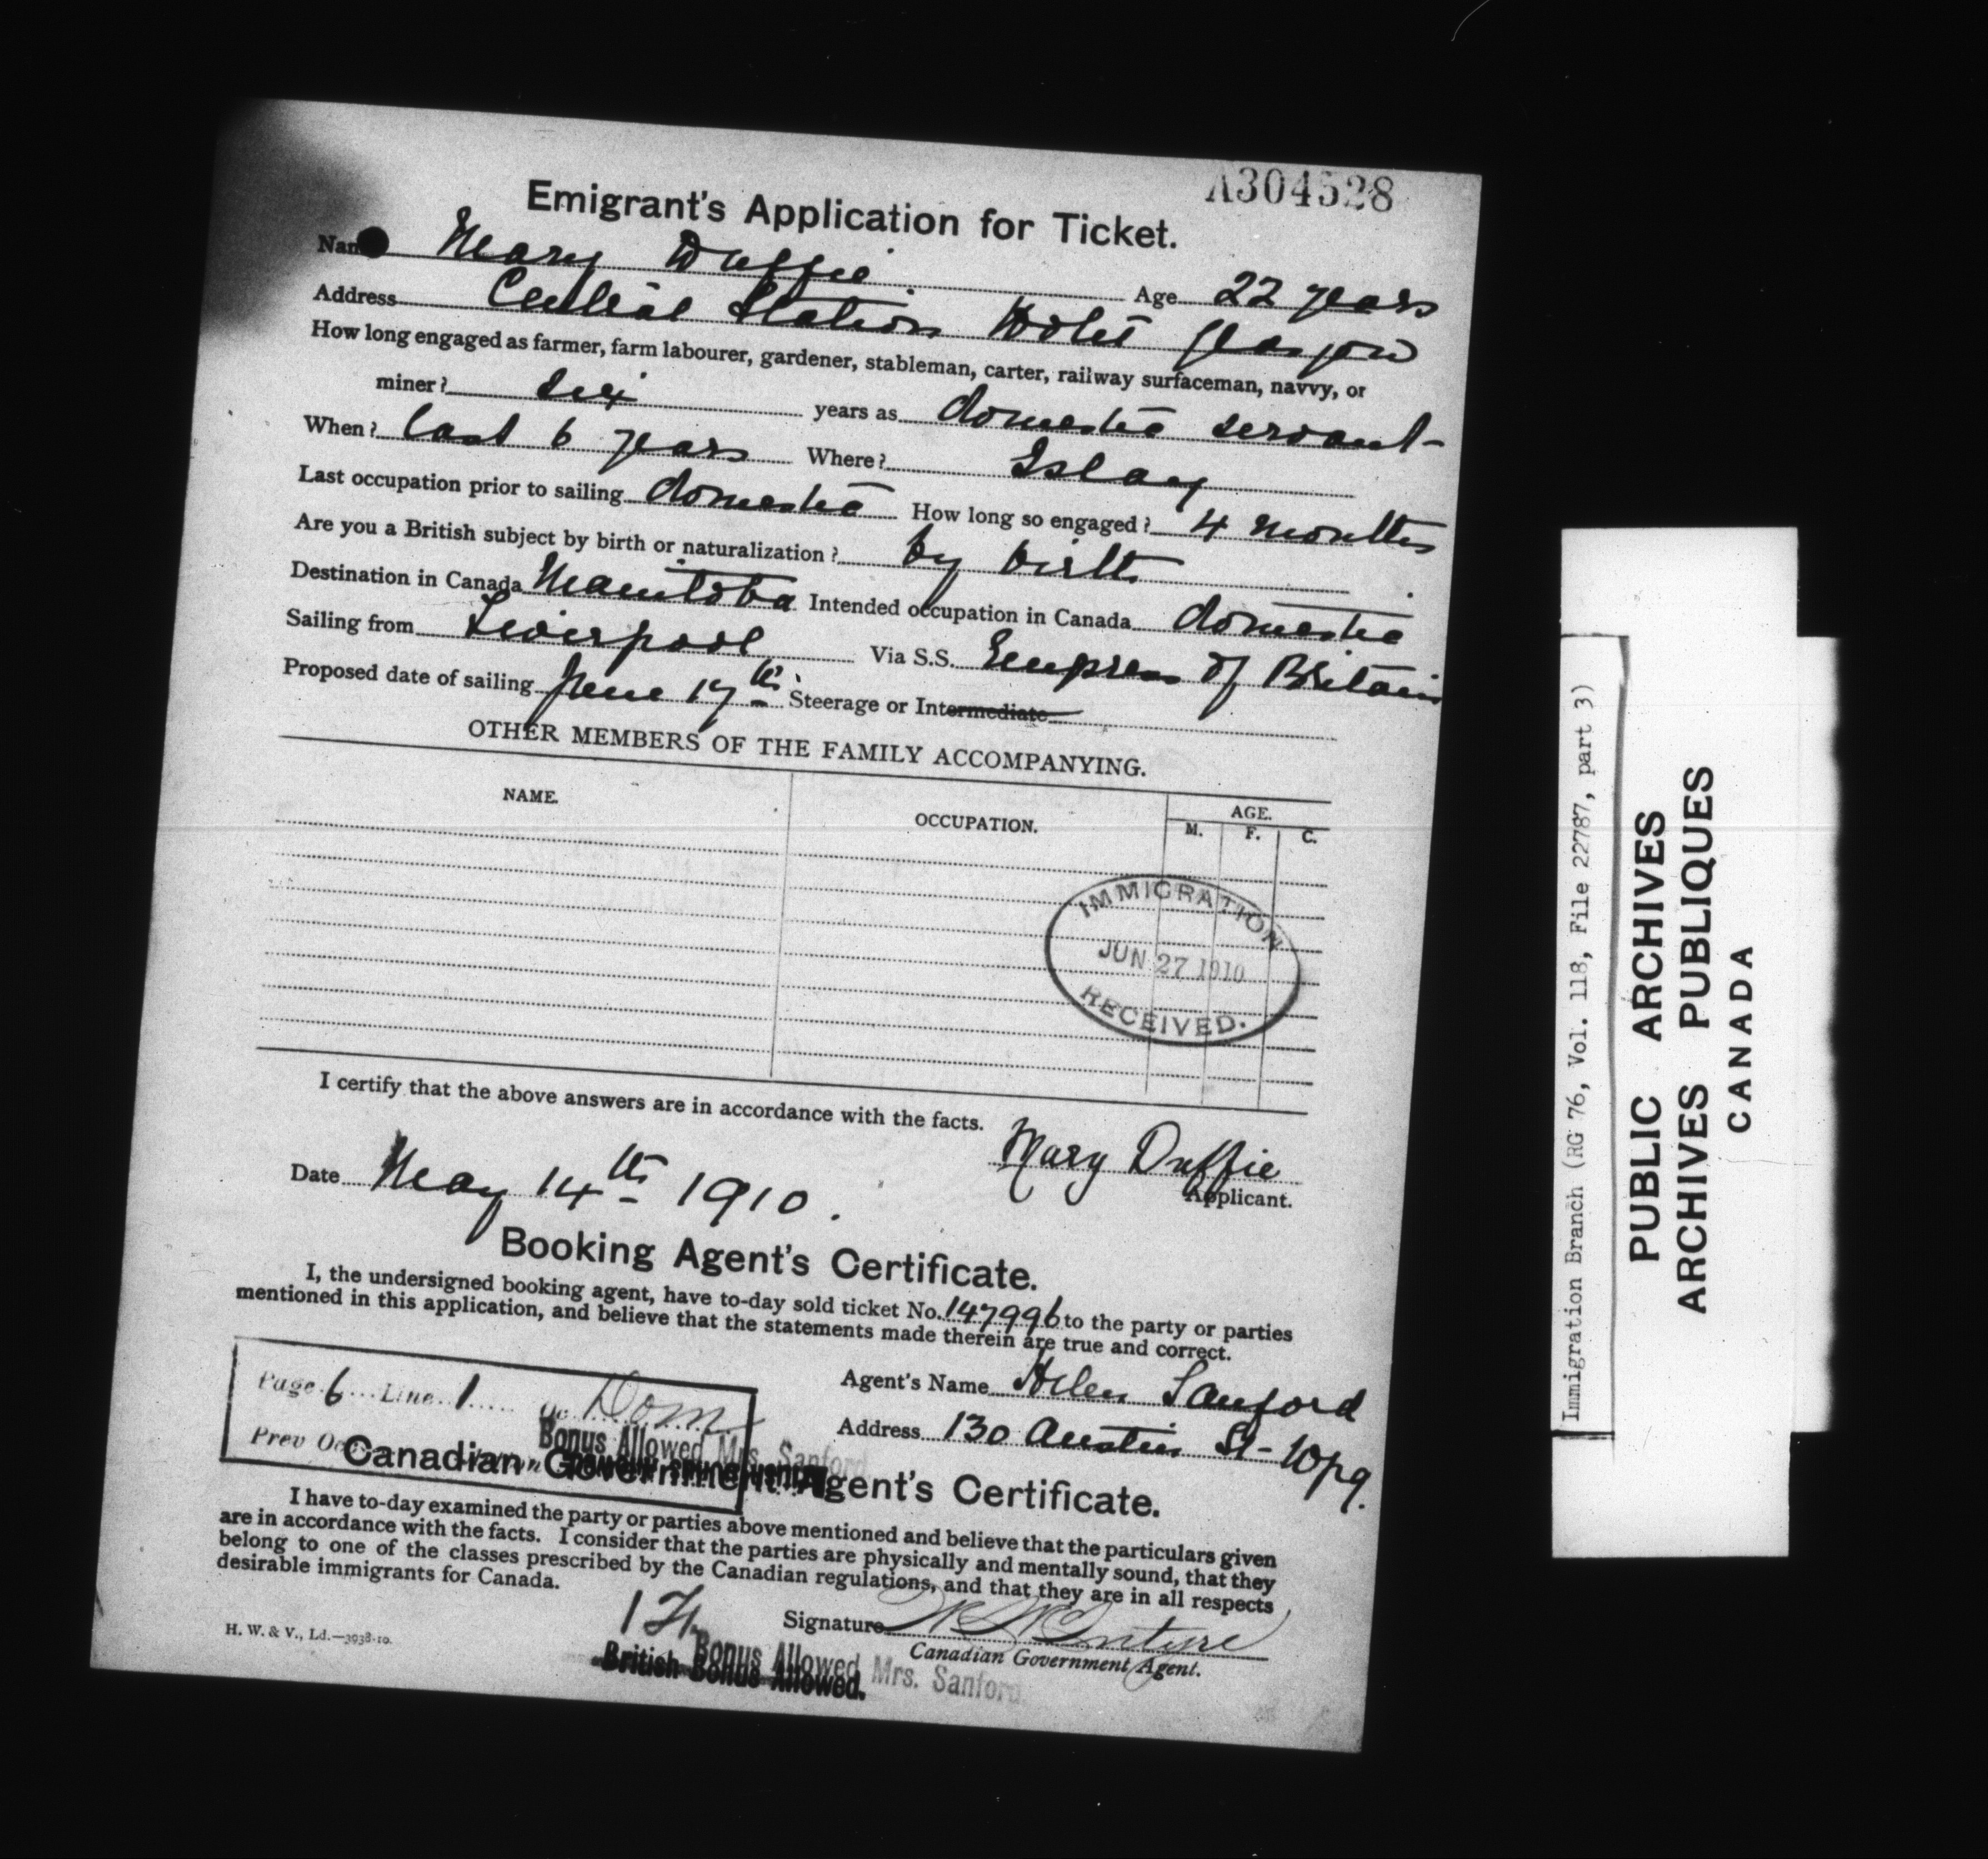 A304528
Emigrant's Application for Ticket.
Name Mary Duffie Age 22 years
Address Central Station Hotel Glasgow
How long engaged as farmer, farm labourer, gardener, stableman, carter, railway surfaceman, navvy, or
miner? six years as domestic servant
When? last 6 years Where? Islay
Last occupation prior to sailing domestic How long so engaged? 4 months
Are you a British subject by birth or naturalization? by birth
Destination in Canada Manitoba Intended occupation in Canada domestic
Sailing from Liverpool Via S.S. Empress of Britain
Proposed date of sailing June 17th Steerage or Intermediate
OTHER MEMBERS OF THE FAMILY ACCOMPANYING.
NAME. OCCUPATION. AGE.
M. F. C.
IMMIGRATION
JUN 27 1910
RECEIVED.
I certify that the above answers are in accordance with the facts.
Mary Duffie
Applicant.
Date May 14th 1910.
Booking Agent's Certificate.
I, the undersigned booking agent, have to-day sold ticket No. 147996 to the party or parties
mentioned in this application, and believe that the statements made therein are true and correct.
Agent's Name Helen Sanford
Address 130 Austin St - Wpg.
Page 6 Line 1 Oc. Dom
Prev Oc
Bonus Allowed Mrs. Sanford
Canadian Government Agent's Certificate.
I have to-day examined the party or parties above mentioned and believe that the particulars given
are in accordance with the facts. I consider that the parties are physically and mentally sound, that they
belong to one of the classes prescribed by the Canadian regulations, and that they are in all respects
desirable immigrants for Canada.
Signature
Canadian Government Agent.
H. W. & V., Ld.—3938-10.
Bonus Allowed Mrs. Sanford.
British Bonus Allowed.
Immigration Branch (RG 76, Vol. 118, File 22787, part 3)
PUBLIC ARCHIVES
ARCHIVES PUBLIQUES
CANADA